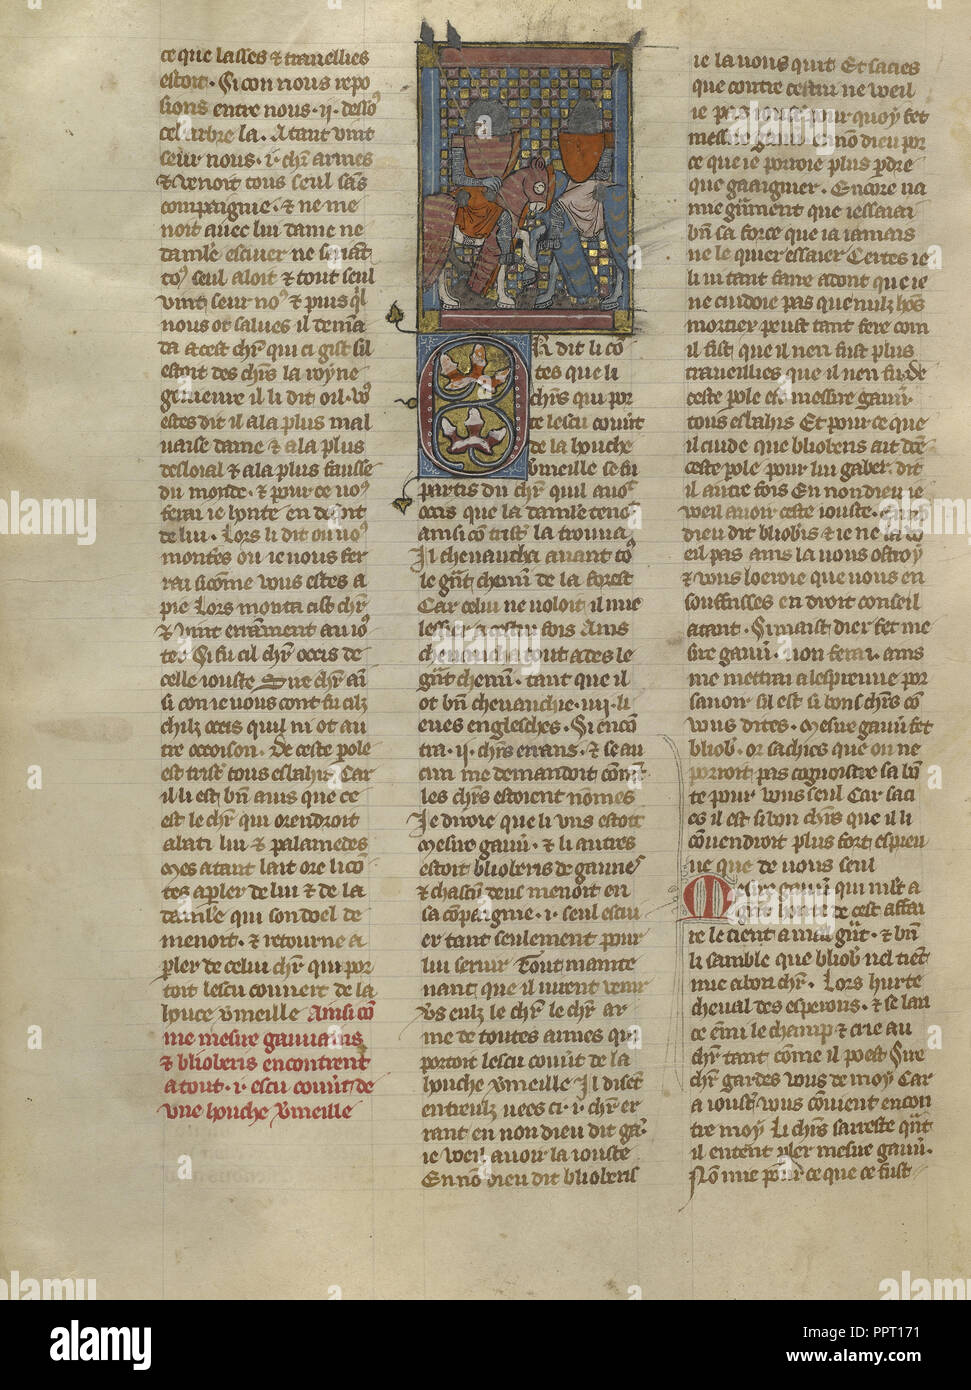 ce que lasses & trauellies
estoit. Si con nous repo
sions entre nous .ij. dessoz
cel arbre la. Atant vint
seur nous .i. chr armes
& venoit tous seul sans
compaignie. & ne me
noit auec lui dame ne
damle escuier ne seriant
toz seul aloit & tout seul
vint seur noz & puis ql
nous ot salues il dema
da a cest chr qui ci gist sil
estoit des chrs la royne
genieure il li dit oil. voz
estes dit il a la plus mal
uaise dame & a la plus
desloial & a la plus fausse
du monde. & pour ce voz
ferai ie honte en despit
de lui. Lors li dit ou vo
montes ou ie vous fer
rai si come vous estes a
pie Lors monta cist chr
& vint erranment au io
ter Si fu cil chr occis de
celle iouste Sire chr ain
si con ie vous cont fu cilz
chrlz occis quil ni ot au
tre occoison. De ceste pole
est trist tous eslahis Car
il li est bn auis que ce
est le chr qui orendroit
abati lui & palamedes
Mes atant lait ore li co
tes a pler de lui & de la
damle qui son doel de
menoit. & retourne a
pler de celui chr qui por
toit lescu couuert de la
houce vmeille Ainsi co
me mesire gauuains
& blioberis encontrent
a tout .i. escu couut de
vne houche vmeille
Or dit li co
tes que li
chrs qui por
te lescu couut
de la houche
vmeille se fu
partis du chr quil auoit
occis que la damle tenoit
ainsi co trist la trouua
Il cheuaucha auant toz
le gnt chemi de la forest
Car celui ne voloit il mie
lessier a ceste fois Ains
cheuaucha tout ades le
gnt chemi. tant que il
ot bn cheuauchie .iiij. li
eues englesches. Si enco
tra .ij. chrs errans. & se au
cun me demandoit comt
les chrs estoient nommes
Je diroie que li vns estoit
mesire gauu. & li autres
estoit blioberis de gaunes
& chascun deus menoit en
sa copaignie .i. seul escui
er tant seulement pour
lui seruir Tout mainte
nant que il virent venir
vs eulz le chr le chr ar
me de toutes armes qui
portoit lescu couut de la
houche vmeille Il disent
entreulz vees ci .i. chr er
rant en non dieu dit ga.
ie weil auoir la iouste
En no dieu dit blioberis
ie la vous quit Et sacies
que contre cestui ne weil
ie pas iouster pour quoy fet
messire gauu. en no dieu por
ce que ie porroie plus pdre
que gaaignier. Encore na
mie gument que iessaiai
bn sa force que ia iamais
ne le quier essaier Certes ie
li vi tant faire adont que ie
ne cuidoie pas que nulz hos
mortiex peust tant fere com
il fist que il nen fust plus
trauellies que il nen fu de
ceste pole est messire gauu.
tous eslahis Et pour ce que
il cuide que blioberis ait dite
ceste pole pour lui gaber. dit
il autre fois En non dieu ie
weil auoir ceste iouste. En no
dieu dit bliobis & ie ne la co
eil pas ains la vous ostroy
& vous loeroie que vous en
souffrisses en droit conseil
atant. Si maist dier fet me
sire gauu. non ferai. ains
me mettrai a lespreuue por
sauoir sil est si bons chrs co
vous dites. Mesire gauu fet
bliob. or sachies que on ne
porroit pas cognoistre sa bo
te pour vous seul Car saci
es il est si bon chrs que il li
couendroit plus fort espreu
ue que de vous seul
Mesire gauu qui nist a
gnt honte de cest affai
re le tient a mal gnt. & bn
li samble que bliob nel tiet
mie a bon chr. Lors hurte
cheual des esperons. & se lan
ce emi le champ & crie au
chr tant come il poest Sire
chr gardes vous de moy Car
a iouster vous couient encon
tre moy Li chrs sarreste qnt
il entent pler mesire gauu.
No mie pour ce que ce fust